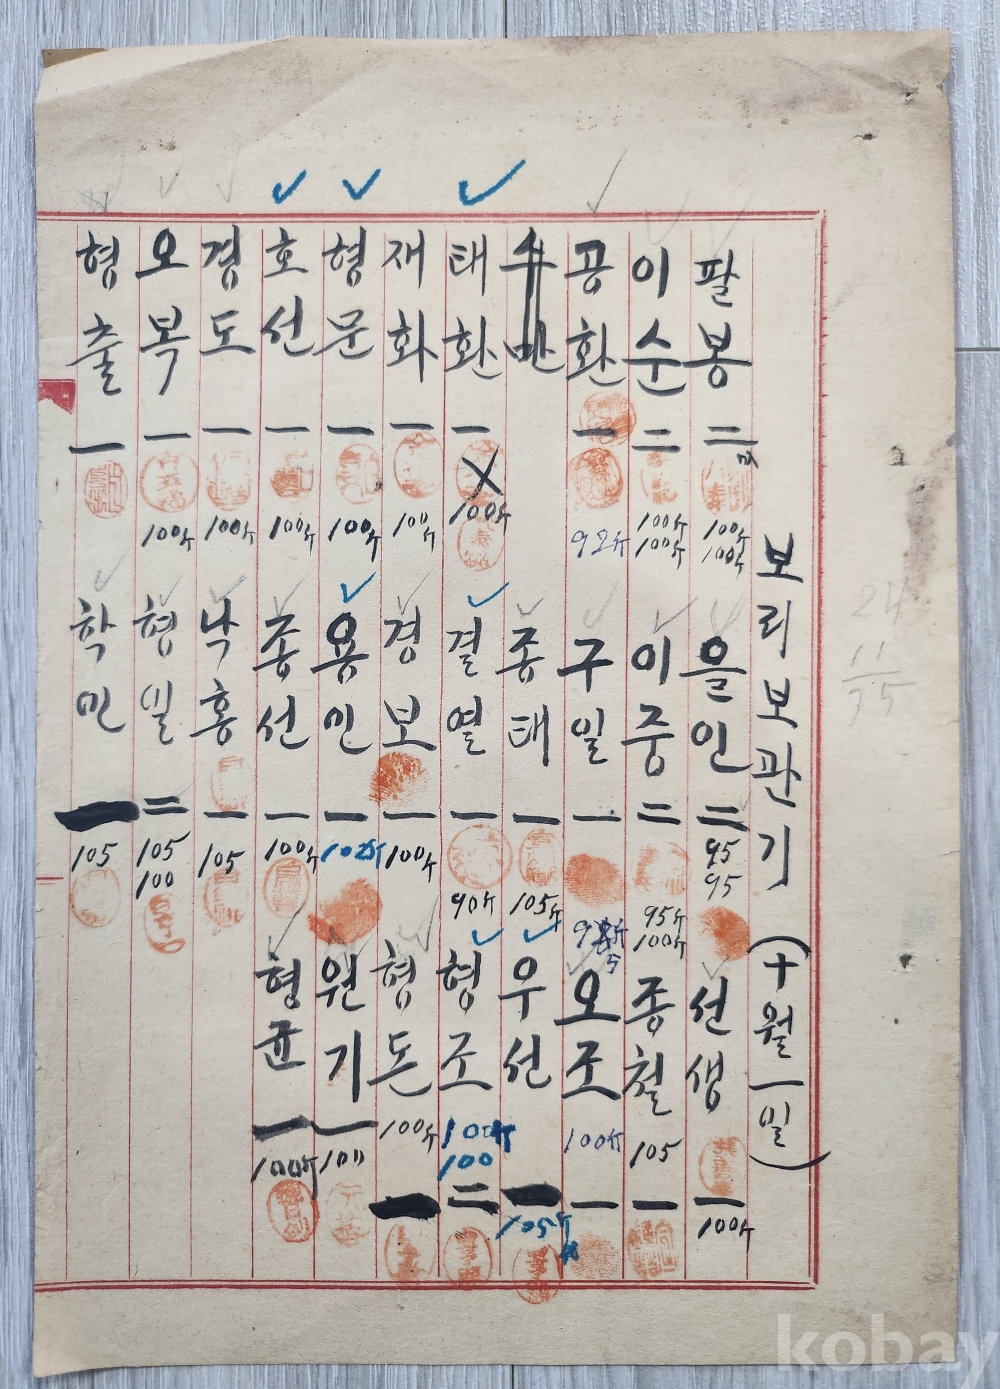 보리보관기 (十월一일)
팔봉 二 100斤 100斤 을인 二 95 95 선생 一 100斤
이순 二 100斤 100斤 이중 二 95斤 100斤 종철 105 一
공환 一 92斤 구일 一 오조 100斤 一
종태 一 105斤 우선 一 105斤
태환 一 100斤 결열 一 90斤 형조 100斤 100 二
재화 一 100斤 경보 一 100斤 형돈 100斤 一
형문 一 100斤 용민 一 102斤 원기 一 100
호선 一 100斤 종선 一 100斤 형균 一 100斤
경도 一 100斤 낙홍 一 105
오복 一 100斤 형일 二 105 100
형출 一 학민 一 105
24
11
kobay